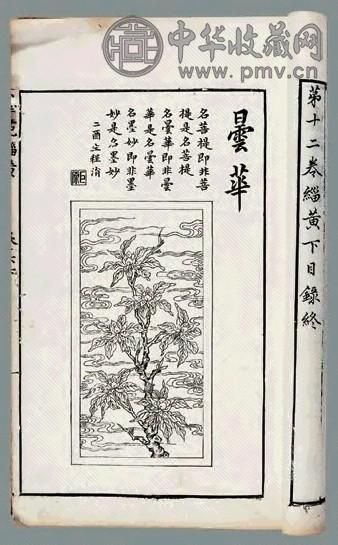 中华收藏网
www.pmv.cn
第十二卷緇黃下目錄終
曇華
名菩提即非菩
提是名菩提
名曇華即非曇
華是名曇華
名墨妙即非墨
妙是名墨妙
二酉主程涓